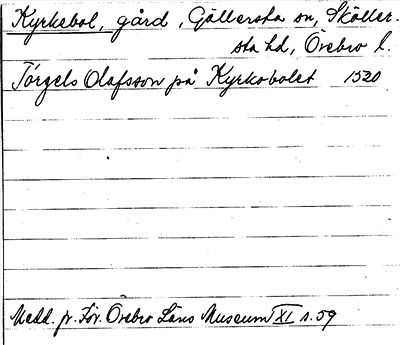 Kyrkebol, gård, Gällersta sn, Sköller-
sta hd, Örebro l.
Törgels Olafsson på Kyrkobolet 1520
Medd. fr. För. Örebro Läns Museum XI s. 59